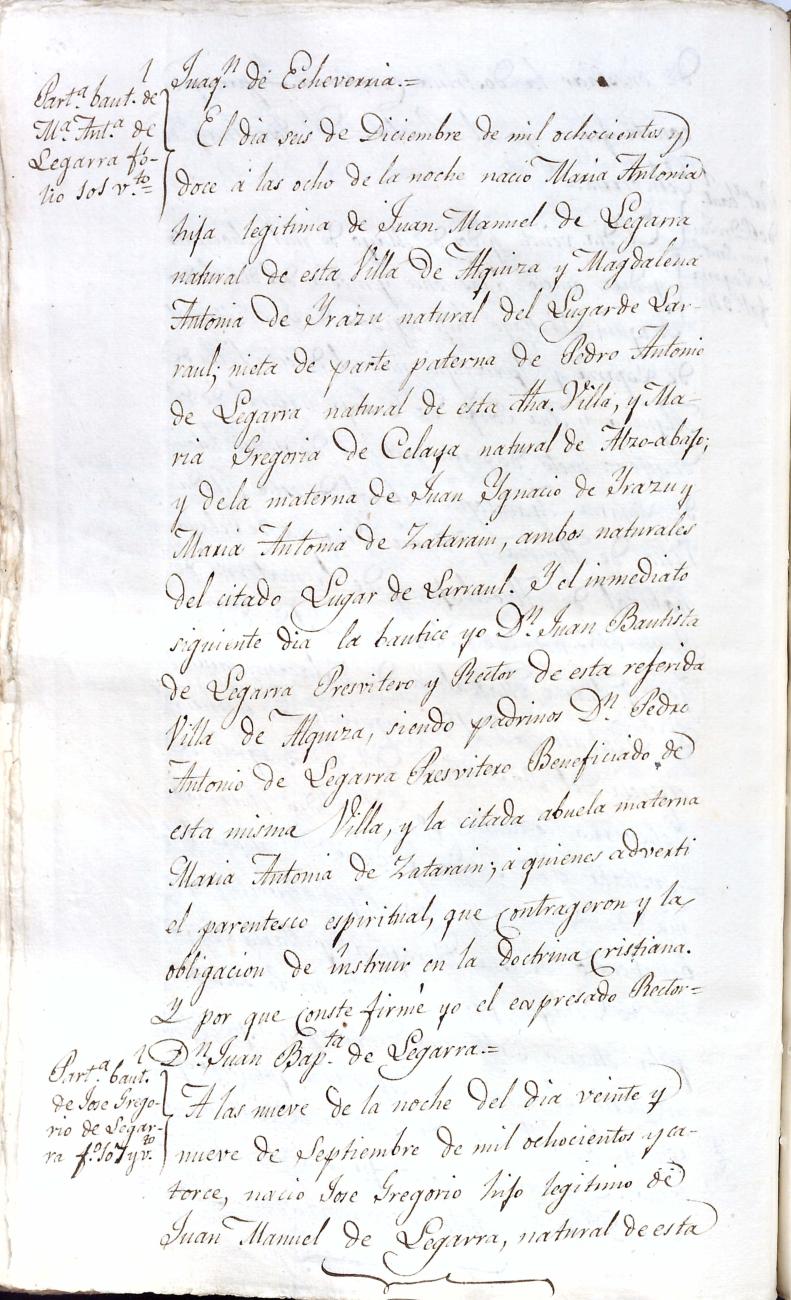 Juaqn. de Echeverria.=
1
Parta. baut. de
Ma. Anta. de
Legarra fó-
lio 101 vto.=
El dia seis de Diciembre de mil ochocientos y
doce á las ocho de la noche nació Maria Antonia
hija legitima de Juan Manuel de Legarra
natural de esta Villa de Alquiza y Magdalena
Antonia de Yrazu natural del Lugar de Lar-
raul; nieta de parte paterna de Pedro Antonio
de Legarra natural de esta dha. Villa, y Ma-
ria Gregoria de Celaya natural de Alzo-abajo;
y dela materna de Juan Ygnacio de Yrazu y
Maria Antonia de Zatarain, ambos naturales
del citado Lugar de Larraul. Y el inmediato
siguiente dia la bautice yo Dn. Juan Bautista
de Legarra Presvitero y Rector de esta referida
Villa de Alquiza, siendo padrinos Dn. Pedro
Antonio de Legarra Presvitero Beneficiado de
esta misma Villa, y la citada abuela materna
Maria Antonia de Zatarain; á quienes adverti
el parentesco espiritual, que contrageron y la
obligacion de instruir en la doctrina cristiana.
Y por que conste firmé yo el expresado Rector=
Dn. Juan Bapta. de Legarra.=
1
Parta. baut.
de Jose Grego-
rio de Legar-
ra fo. 107 y vto.
A las nueve de la noche del dia veinte y
nueve de Septiembre de mil ochocientos y ca-
torce, nació Jose Gregorio hijo legitimo de
Juan Manuel de Legarra, natural de esta